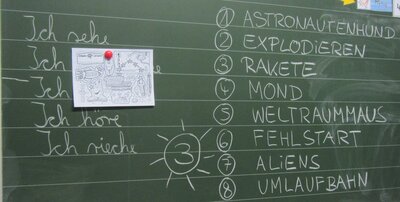 Ich sehe
Ich
Ich
Ich höre
Ich rieche
3
1 ASTRONAUTENHUND
2 EXPLODIEREN
3 RAKETE
4 MOND
5 WELTRAUMMAUS
6 FEHLSTART
7 ALiENS
8 UMLAUFBAHN